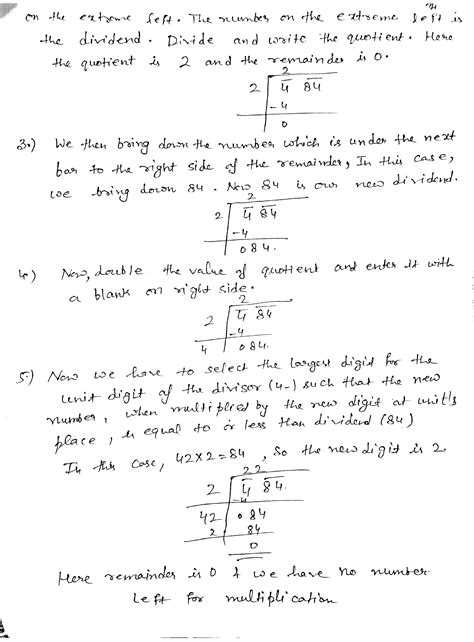 on the extreme left. The number on the extreme left is
the dividend. Divide and write the quotient. Here
the quotient is 2 and the remainder is 0.
2
2 4 84
-4
0
3.) We then bring down the number which is under the next
bar to the right side of the remainder, In this case,
we bring down 84. Now 84 is our new dividend.
2
2 4 84
-4
084.
4.) Now, double the value of quotient and enter it with
a blank on right side.
2
2 4 84
-4
4 084.
5.) Now we have to select the largest digit for the
unit digit of the divisor (4-) such that the new
number, when multiplied by the new digit at unit's
place, is equal to or less than dividend (84)
In this case, 42×2=84, So the new digit is 2.
22
2 4 84.
-4
42 084
2 84
0
Here remainder is 0 & we have no number
left for multiplication